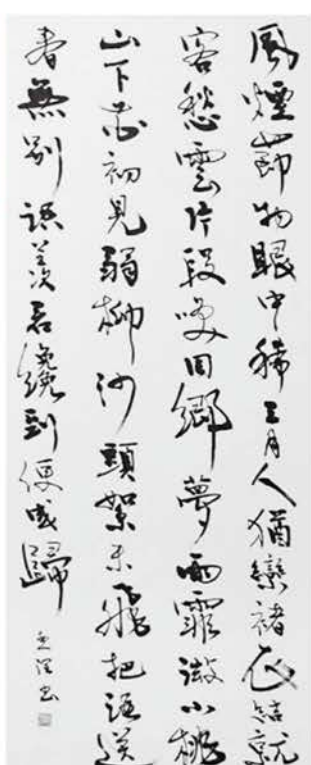 風煙節物眼中稀三月人猶戀褚衣結就
客愁雲片段喚回鄉夢雨霏微小桃
山下花初見弱柳沙頭絮未飛把酒送
春無別語羨君纔到便成歸
書